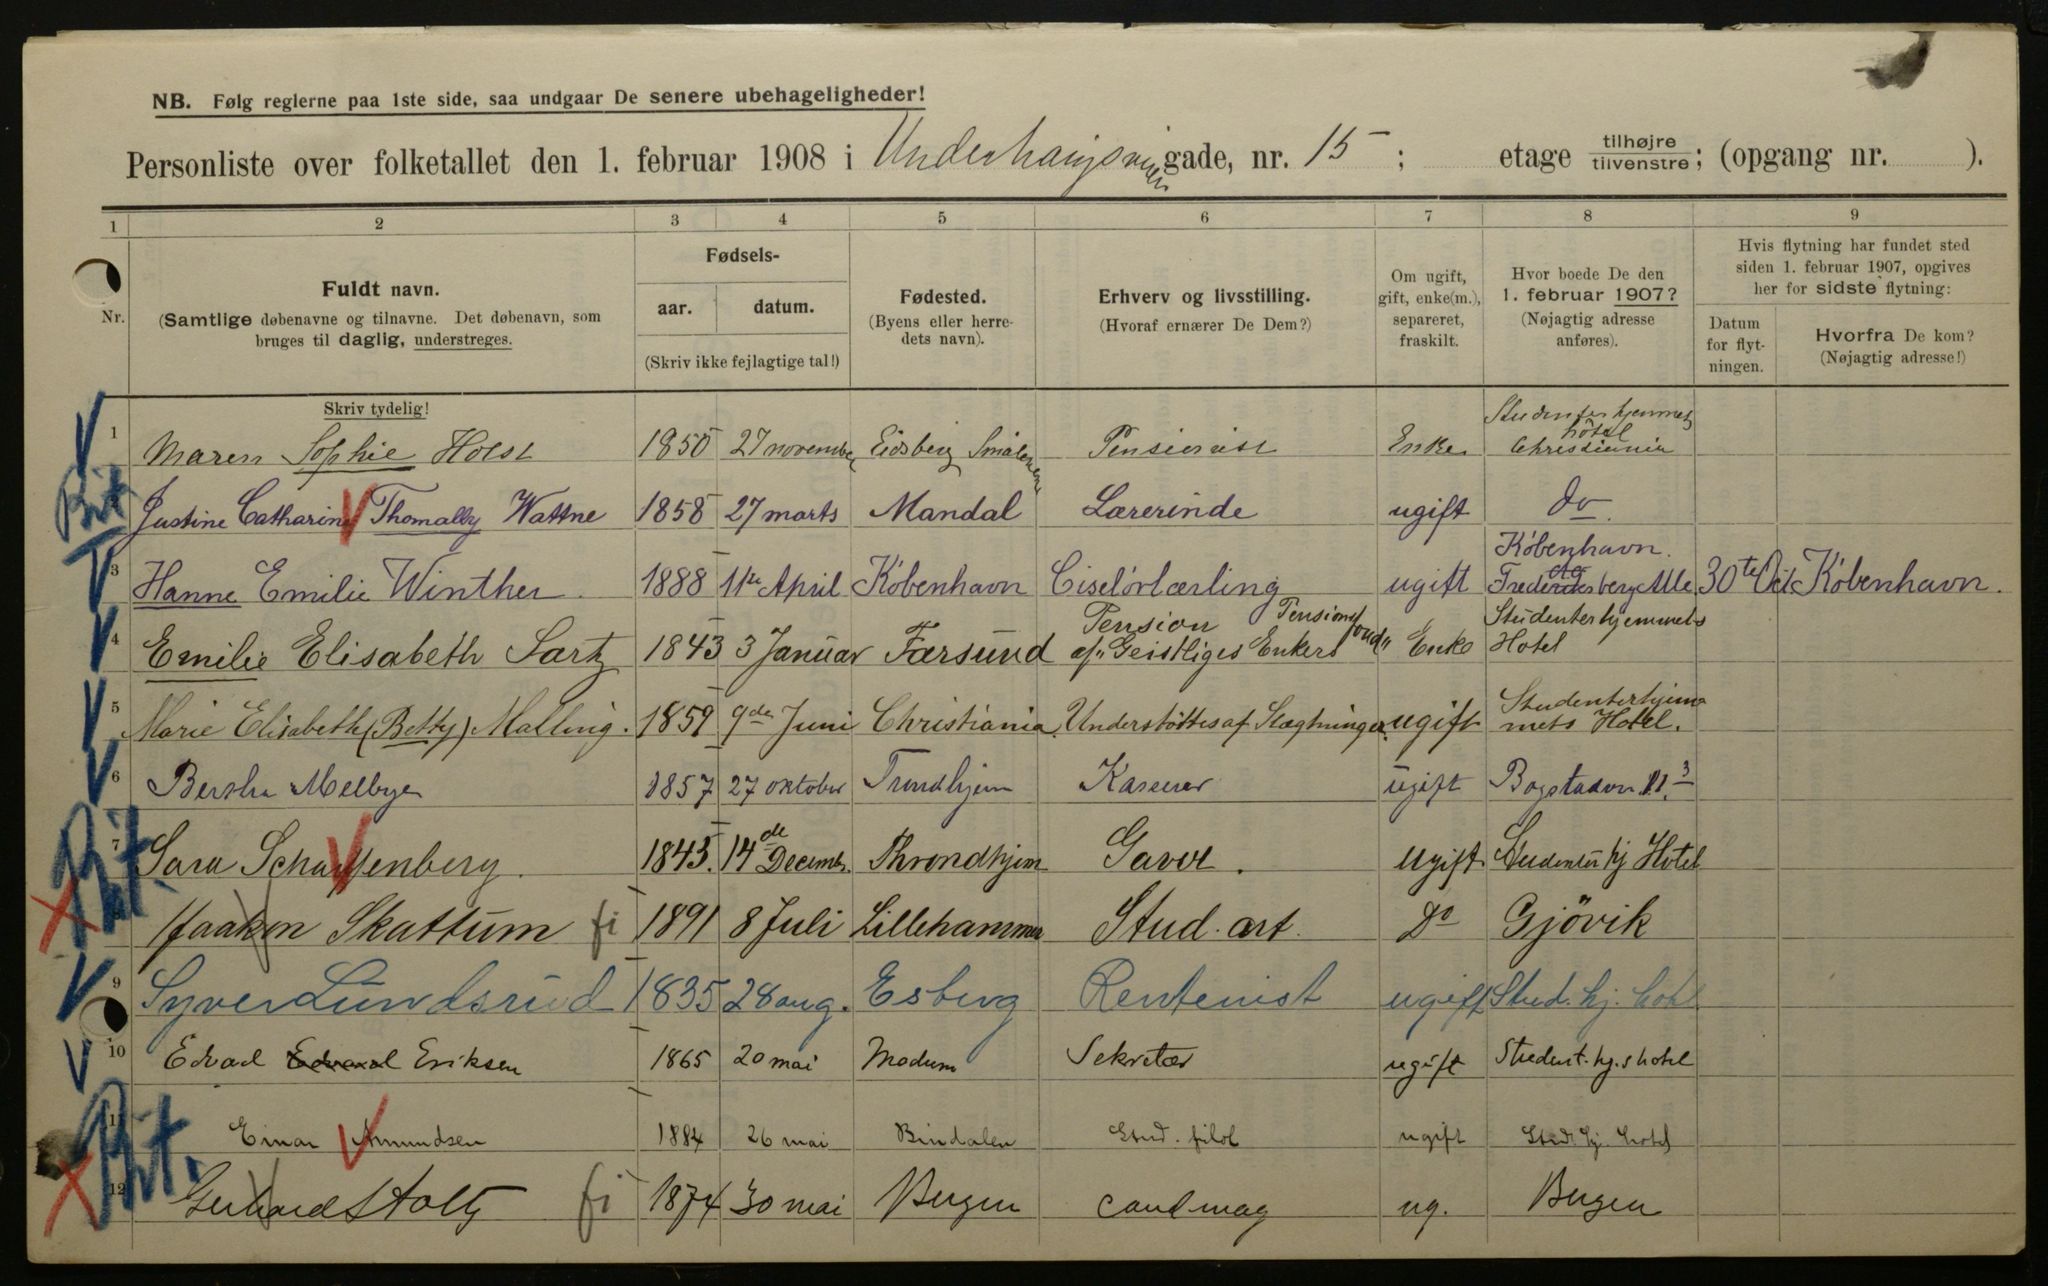 NB. Følg reglerne paa 1ste side, saa undgaar De senere ubehageligheder!
Personliste over folketallet den 1. februar 1908 i Underhaugsveien gade, nr. 15 ; etage tilhøjre tilvenstre; (opgang nr. ).
1 2 3 4 5 6 7 8 9
Nr.
Fuldt navn.
(Samtlige døbenavne og tilnavne. Det døbenavn, som
bruges til daglig, understreges.
Skriv tydelig!
Fødsels-
aar. datum.
(Skriv ikke fejlagtige tal!)
Fødested.
(Byens eller herre-
dets navn).
Erhverv og livsstilling.
(Hvoraf ernærer De Dem?)
Om ugift,
gift, enke(m.),
separeret,
fraskilt.
Hvor boede De den
1. februar 1907?
(Nøjagtig adresse
anføres).
Hvis flytning har fundet sted
siden 1. februar 1907, opgives
her for sidste flytning:
Datum
for flyt-
ningen.
Hvorfra De kom?
(Nøjagtig adresse!)
1 Maren Sophie Holst 1850 27 november Eidsberg Smålenene Pensionist Enke Studenterhjemmets hôtel Christiania
Bit Justine Catharine Thomally Wattne 1858 27 marts Mandal Lærerinde ugift do.
3 Hanne Emilie Winther. 1888 11te April København Ciselørlærling ugift København. Frederiksberg Alle 30te Oct København.
4 Emilie Elisabeth Sartz 1843 3 Januar Farsund Pension af "Geistliges Enkers Pensionsfond" Enke Studenterhjemmets Hotel
5 Marie Elisabeth (Betty) Malling. 1859 9de Juni Christiania. Understöttes af Slægtninger. ugift Studenterhjemmets Hotel.
6 Bertha Melbye 1857 27 oktober Trondhjem Kaserer ugift Bogstadvn 11.3
7 Bit. Sara Scharffenberg. 1845. 14de Decembr. Throndhjem Gaver. ugift Studenterhj Hotel
8 Haakon Skattum fi 1891 8 Juli Lillehammer Stud. art. Do Gjövik
9 Syver Lundsrud 1835 28 aug. Esberg Rentenist ugift Stud. hj. hotel
10 Edvad Eriksen 1865 20 mai Modum Sekretær ugift Student. hj.s hotel
11 Bit. Einar Amundsen 1884 26 mai Bindalen Stud. filol ugift Stud. hj. hotel
12 Gerhard Stoltz fi 1874 30 mai Bergen cand mag ug. Bergen